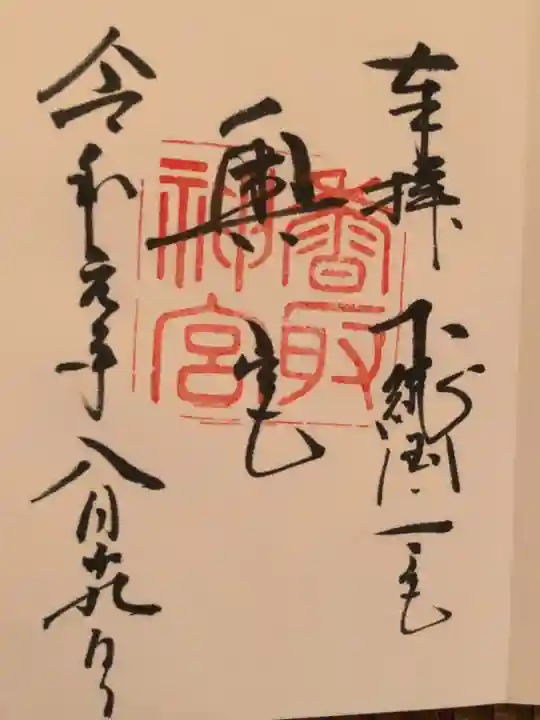 奉拝 下総国一宮
奥宮
香取神宮
令和元年八月十九日